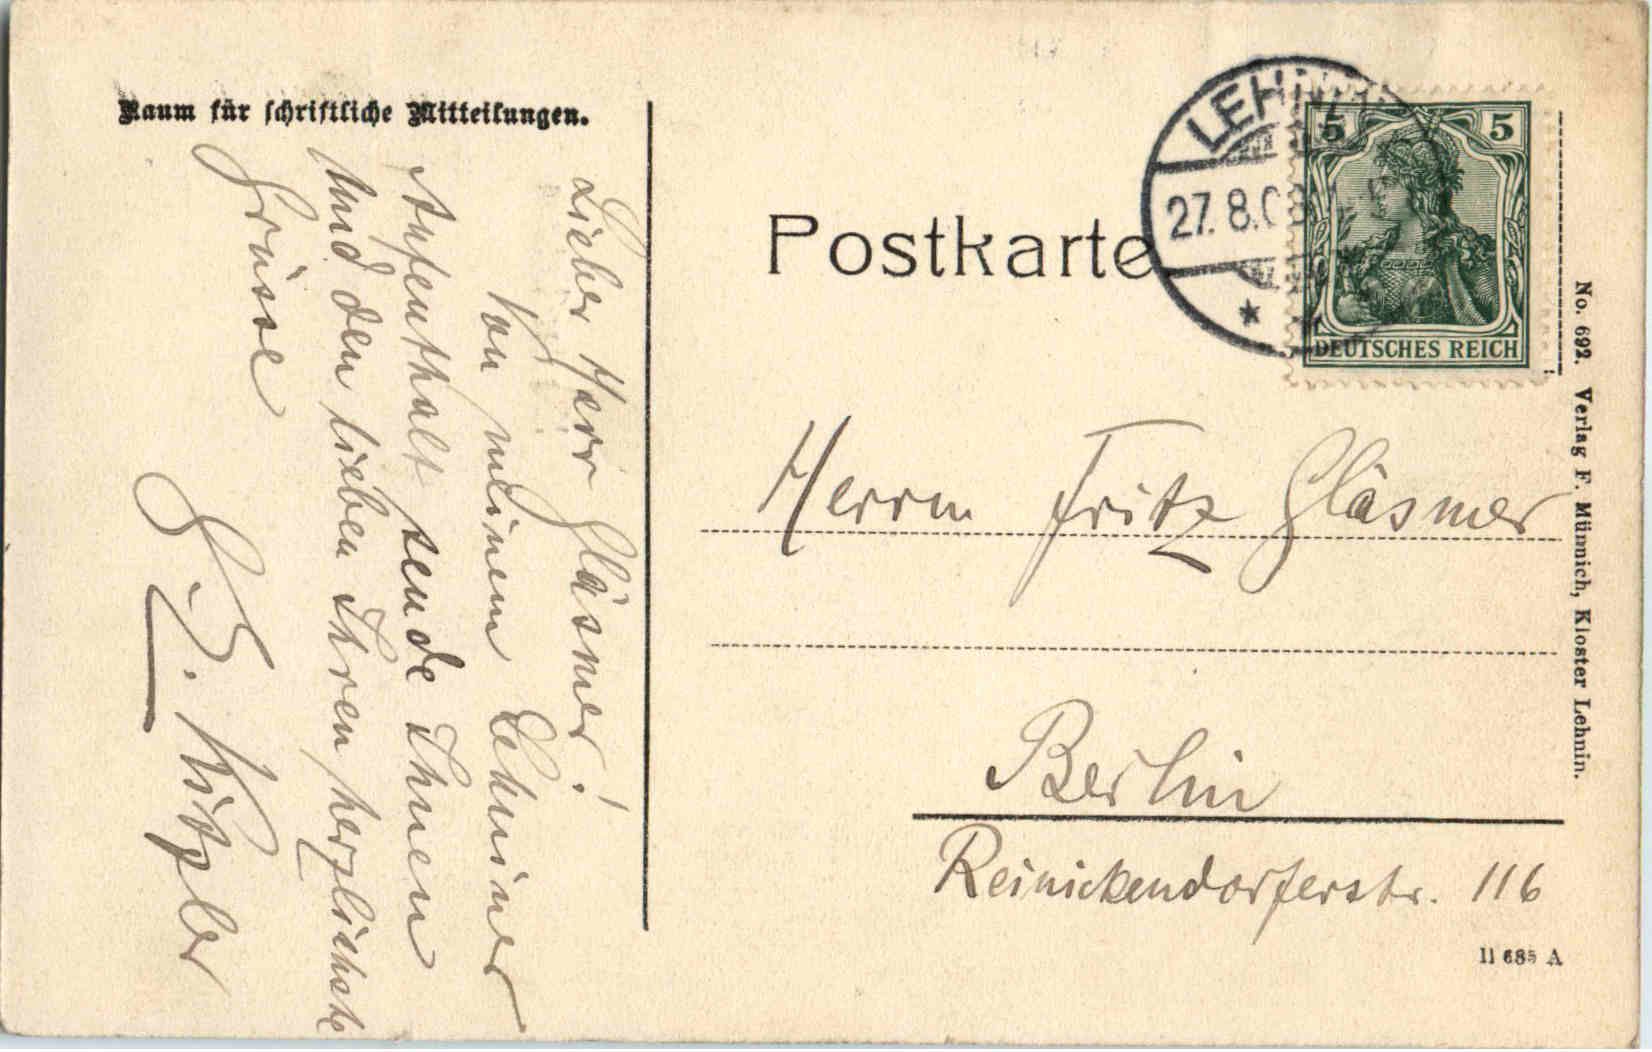 Raum für schriftliche Mitteilungen.
Lieber Herr Gläsmer!
Von meinem Lehniner
Aufenthalt sende Ihnen
und den lieben Ihren herzlichste
Grüsse
Postkarte
LEHNIN
27. 8. 08
5 5
DEUTSCHES REICH
Herrn Fritz Gläsmer
Berlin
Reinickendorferstr. 116
No. 692. Verlag F. Münnich, Kloster Lehnin.
11 685 A